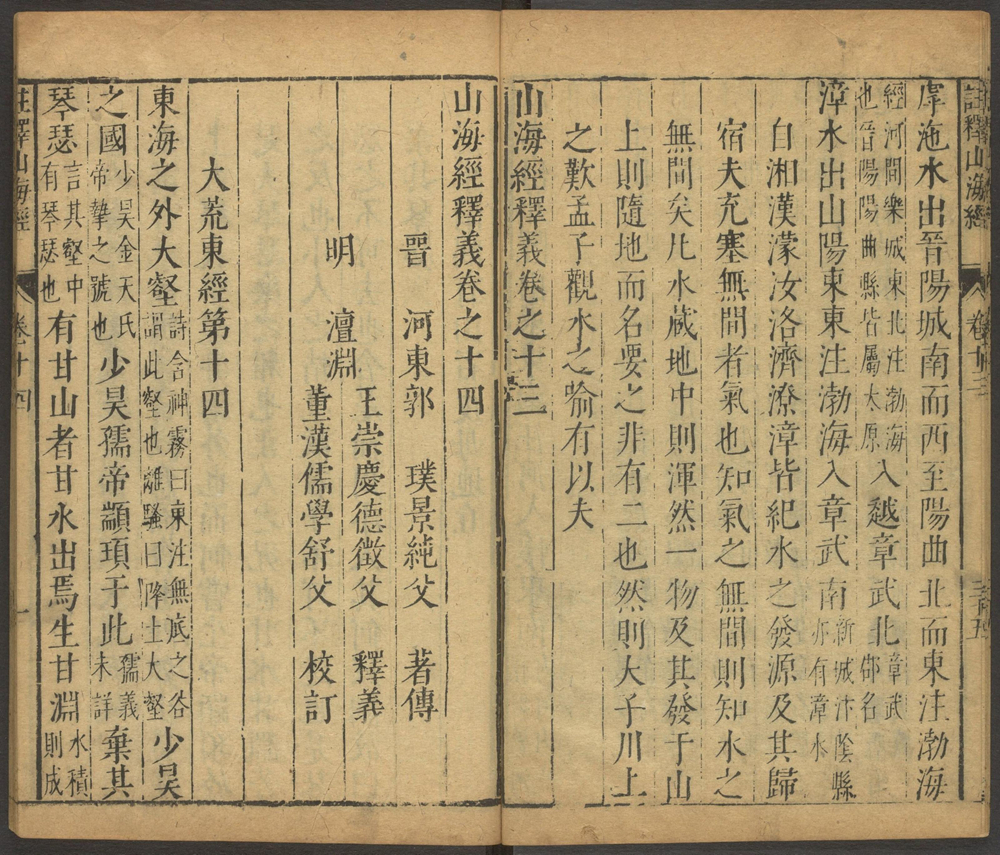 註釋山海經 卷十三 三百五
虖沲水出晉陽城南而西至陽曲北而東注渤海
經河間樂城東北注渤海也晉陽陽曲縣皆屬太原入越章武北章武郡名
漳水出山陽東東注渤海入章武南新城汴陰縣亦有漳水
自湘漢濛汝洛濟潦漳皆紀水之發源及其歸
宿夫充塞無間者氣也知氣之無間則知水之
無間矣凡水蔵地中則渾然一物及其發于山
上則隨地而名要之非有二也然則大子川上
之歎孟子觀水之喻有以夫
山海經釋義卷之十三
山海經釋義卷之十四
晋 河東郭 璞景純父 著傳
明 澶淵 王崇慶德徵父 釋義
董漢儒學舒父 校訂
大荒東經第十四
東海之外大壑詩含神霧曰東注無底之谷謂此壑也離騷曰降土大壑少昊
之國少昊金天氏帝摯之號也少昊孺帝顓頊于此孺義未詳棄其
琴瑟言其壑中有琴瑟也有甘山者甘水出焉生甘淵水積則成
註釋山海經 卷十四 一